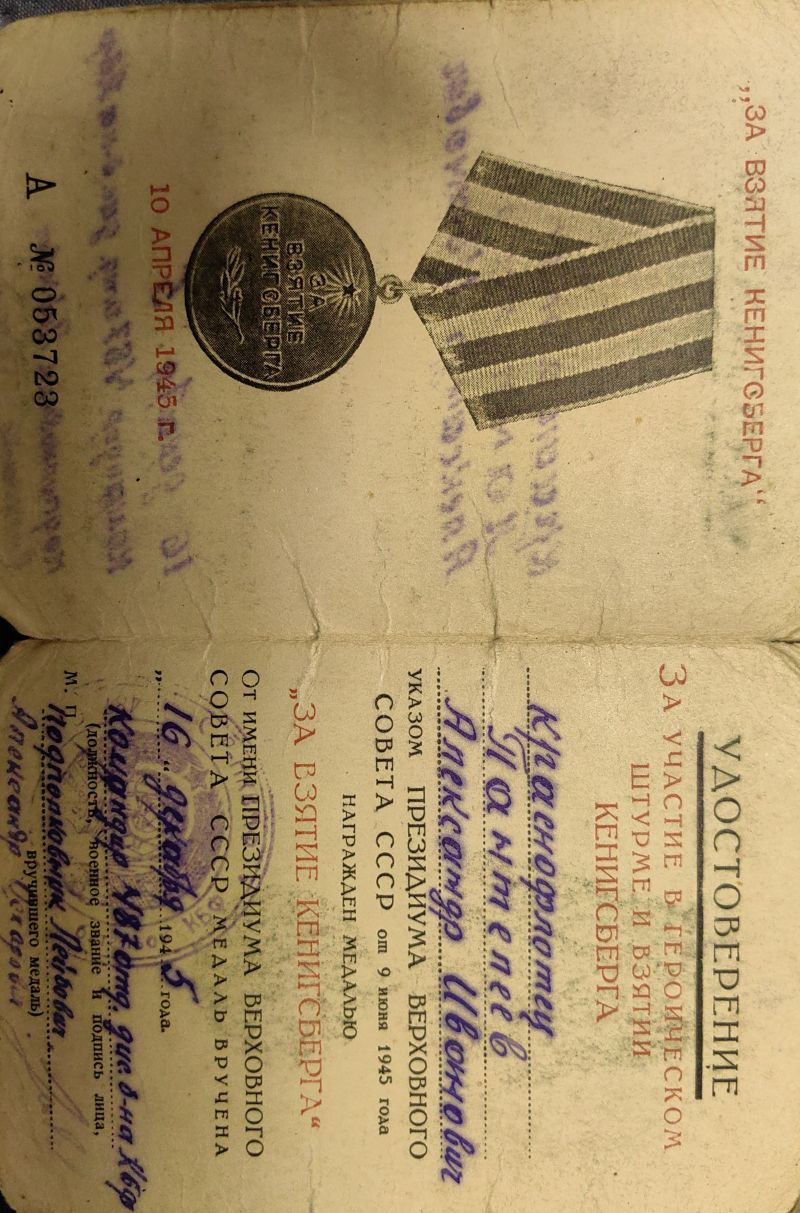 „ЗА ВЗЯТИЕ КЕНИГСБЕРГА“
ЗА
ВЗЯТИЕ
КЕНИГСБЕРГА
10 АПРЕЛЯ 1945 г.
А № 053723
УДОСТОВЕРЕНИЕ
ЗА УЧАСТИЕ В ГЕРОИЧЕСКОМ
ШТУРМЕ И ВЗЯТИИ
КЕНИГСБЕРГА
Краснофлотец
Пантелеев
Александр Иванович
УКАЗОМ ПРЕЗИДИУМА ВЕРХОВНОГО
СОВЕТА СССР от 9 июня 1945 года
НАГРАЖДЕН МЕДАЛЬЮ
„ЗА ВЗЯТИЕ КЕНИГСБЕРГА“
От имени ПРЕЗИДИУМА ВЕРХОВНОГО
СОВЕТА СССР МЕДАЛЬ ВРУЧЕНА
„16“ декабря 1945 года.
Командир 487 отд. див-на КБФ
(должность, военное звание и подпись лица,
М. П. Подполковник Лейбович
вручившего медаль)
Александр